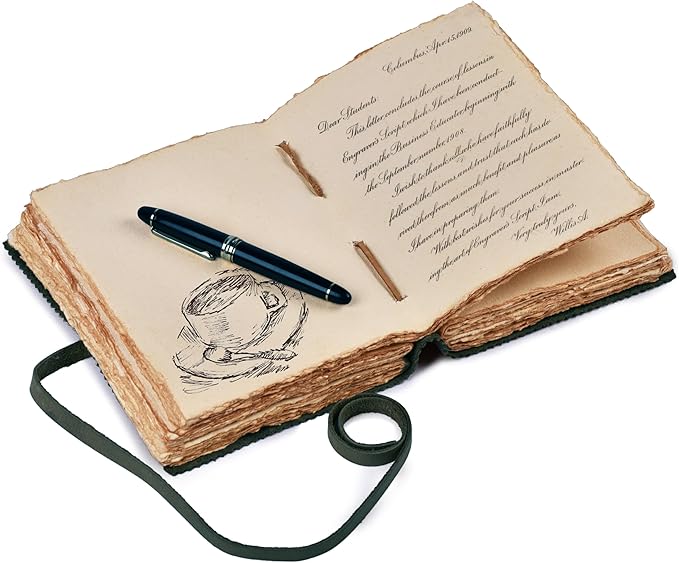 Columbus, Apr. 15, 1909.
Dear Students:
This letter concludes the course of lessons in
Engraver's Script which I have been conduct-
ing in the Business Educator beginning with
the September number 1908.
I wish to thank all who have faithfully
followed the lessons and trust that each has de
rived therefrom as much benefit and pleasure as
I have in preparing them.
With best wishes for your success in master-
ing the art of Engraver's Script, I am,
Very truly yours,
Willis A.